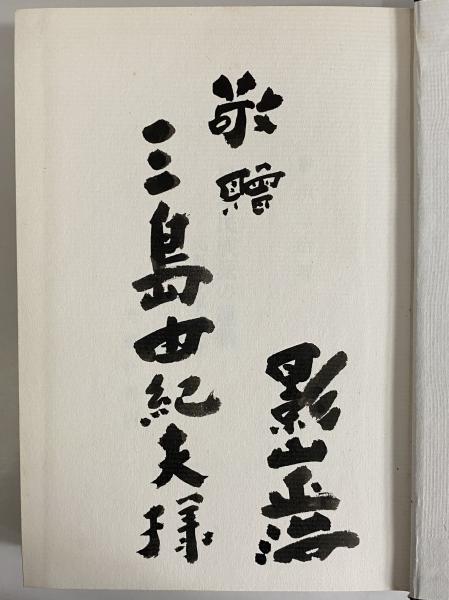 影山正治
敬贈
三島由紀夫様